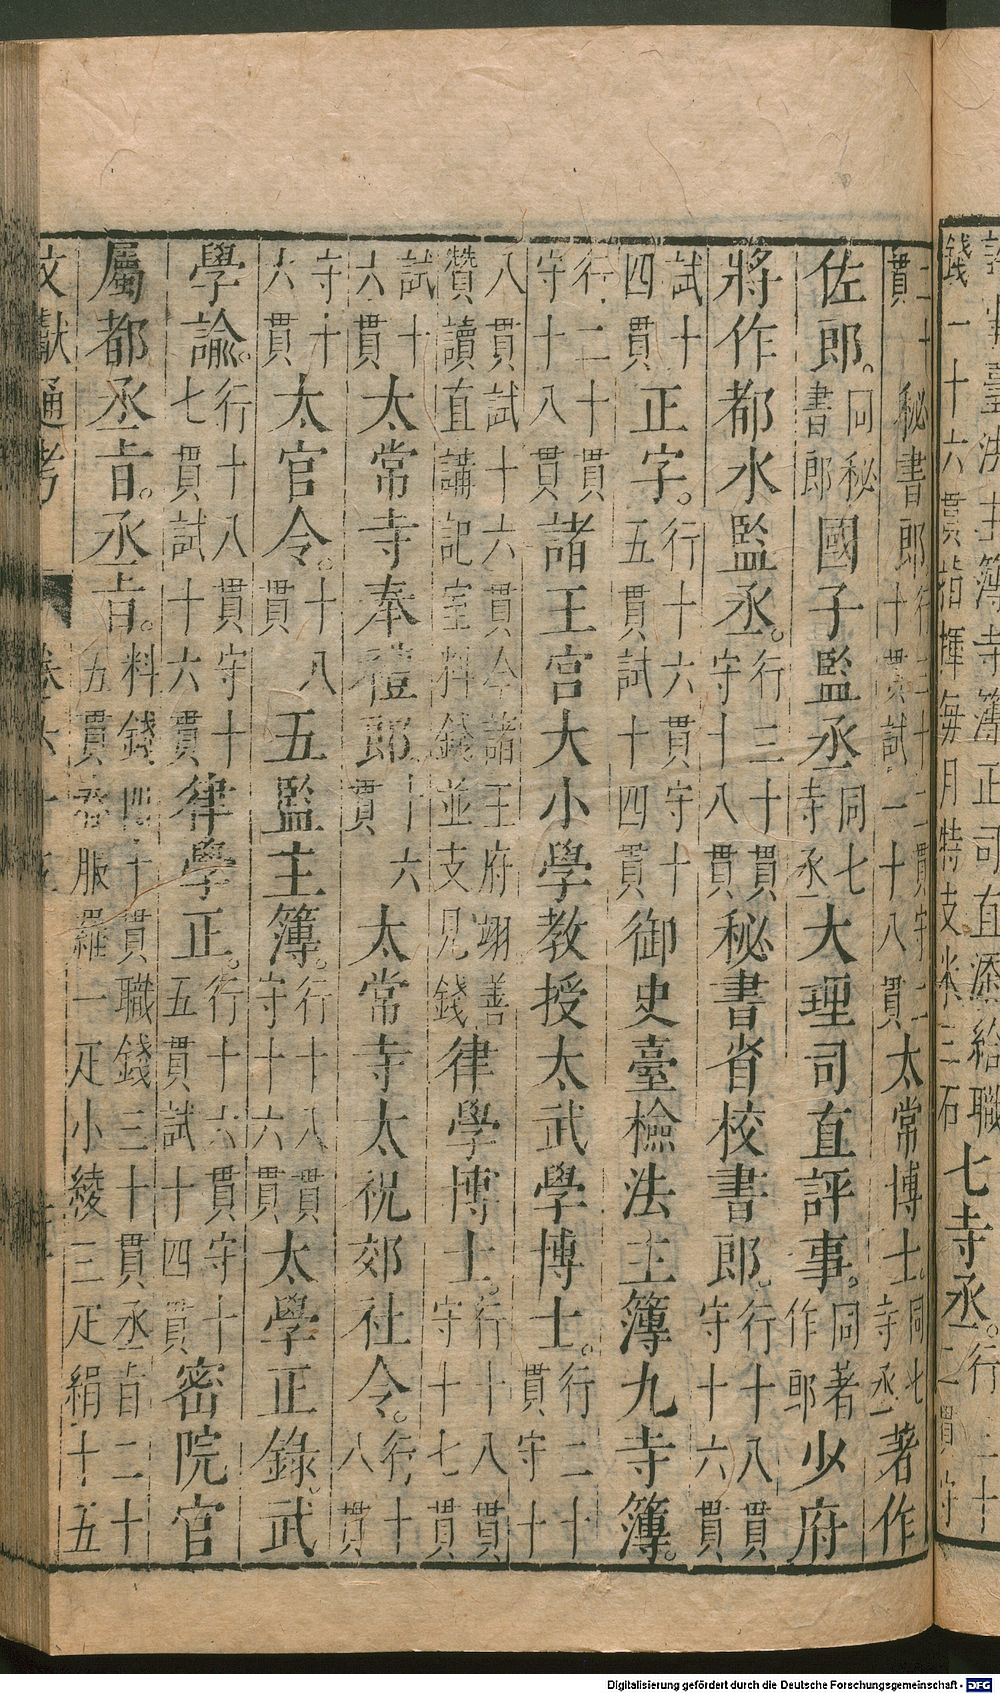 臺法主簿寺簿正司直添給職錢一十六貫指揮每月特支米三石七寺丞。行
二十貫秘書郎行二十二貫守二十貫試一十八貫太常博士。同七寺丞著作
佐郎。同秘書郎國子監丞同七寺丞大理司直評事。同著作郎少府
將作都水監丞。行三十貫守十八貫秘書省校書郎。行十八貫守十六貫
試十四貫正字。行十六貫守十五貫試十四貫御史臺檢法主簿九寺簿。
行二十貫守十八貫諸王宮大小學教授太武學博士。行二十貫守十
八貫試十六貫今諸王府翊善贊讀直講記室料錢並支見錢律學博士。行十八貫守十七貫
試十六貫太常寺奉禮郎。十六貫太常寺太祝郊社令。行十八貫
守十六貫太官令。十八貫五監主簿。行十八貫守十六貫太學正錄。武
學諭。行十八貫守十七貫試十六貫律學正。行十六貫守十五貫試十四貫密院官
屬都丞旨。丞旨。料錢四十貫職錢三十貫丞旨二十五貫春服羅一疋小綾三疋絹十五
文獻通考 卷六十五
Digitalisierung gefördert durch die Deutsche Forschungsgemeinschaft - DFG